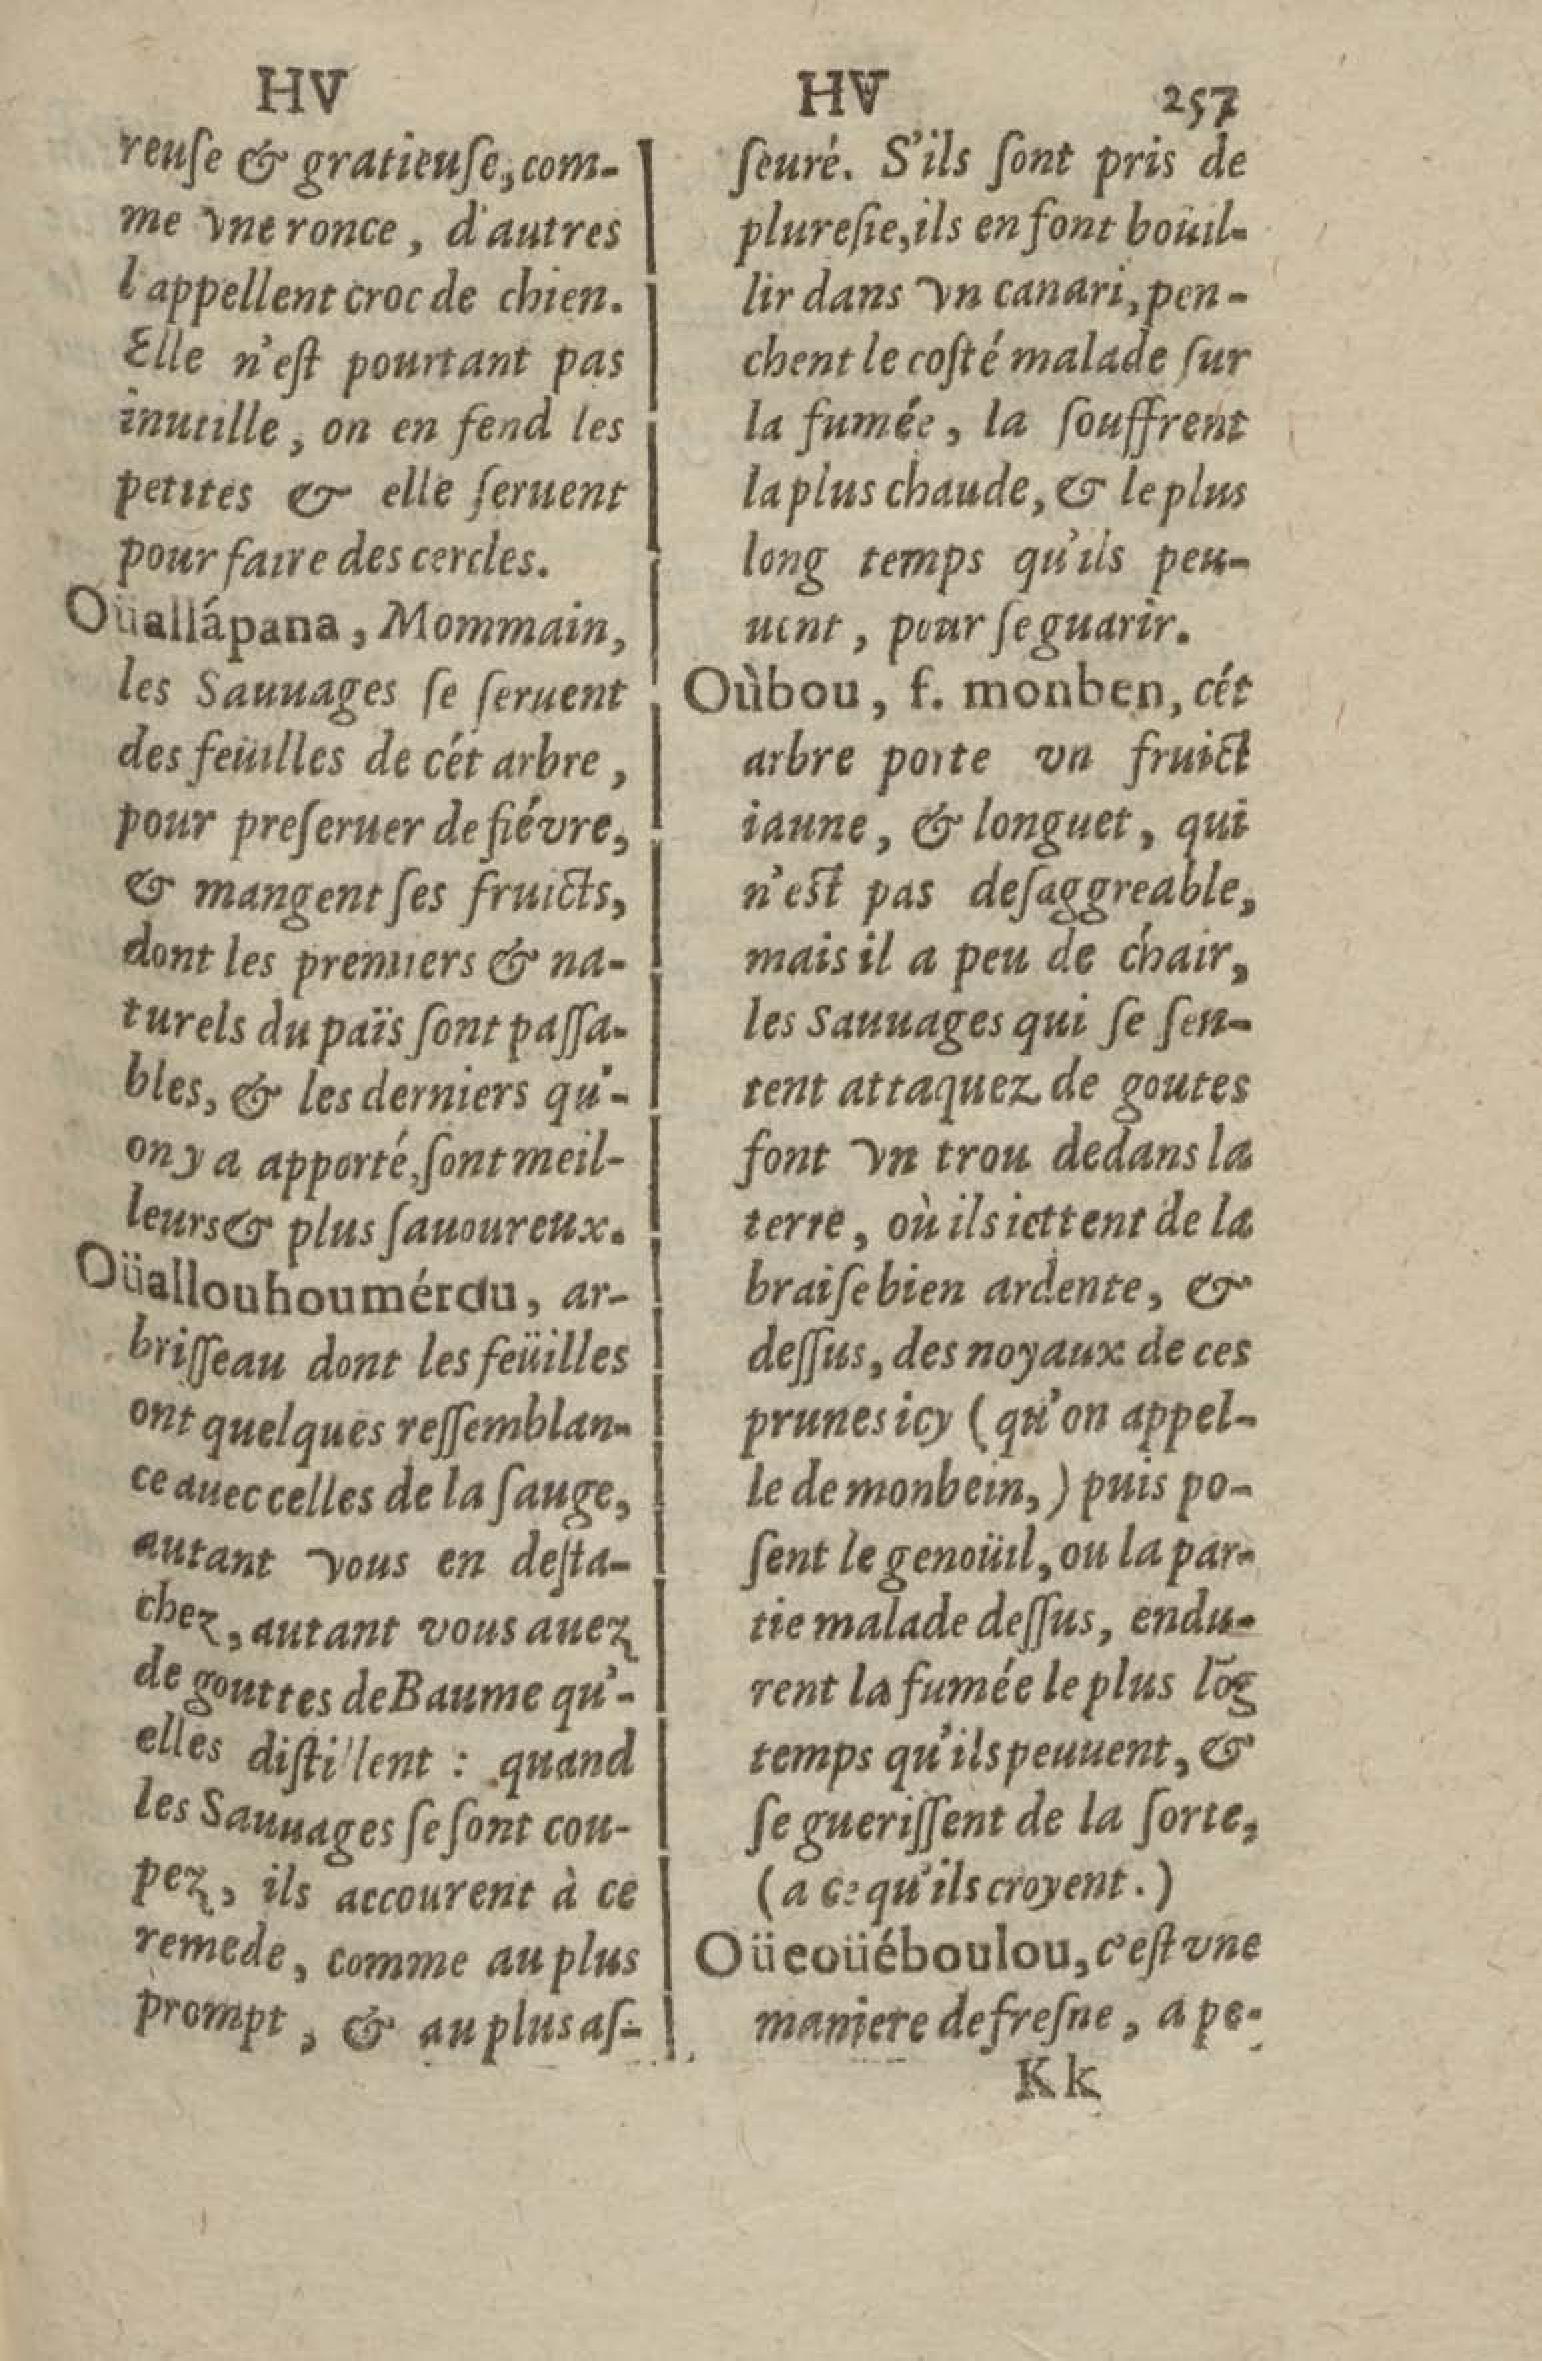 HV
reuſe & gratieuſe, com-
me vne ronce, d'autres
l'appellent croc de chien.
Elle n'eſt pourtant pas
inutille, on en fend les
petites & elle ſeruent
pour faire des cercles.
Oüallápana, Mommain,
les Sauuages ſe ſeruent
des feüilles de cét arbre,
pour preſeruer de fiévre,
& mangent ſes fruicts,
dont les premiers & na-
turels du païs ſont paſſa-
bles, & les derniers qu'-
on y a apporté, ſont meil-
leurs & plus ſauoureux.
Oüallouhoumérou, ar-
briſſeau dont les feüilles
ont quelques reſſemblan-
ce auec celles de la ſauge,
autant vous en deſta-
chez, autant vous auez
de gouttes de Baume qu'-
elles diſtillent : quand
les Sauuages ſe ſont cou-
pez, ils accourent à ce
remede, comme au plus
prompt, & au plus aſ-
HV 257
ſeuré. S'ils ſont pris de
plureſie, ils en font boüil-
lir dans vn canari, pen-
chent le coſté malade ſur
la fumée, la ſouffrent
la plus chaude, & le plus
long temps qu'ils peu-
uent, pour ſe guarir.
Oùbou, f. monben, cét
arbre porte vn fruict
iaune, & longuet, qui
n'eſt pas deſaggreable,
mais il a peu de chair,
les Sauuages qui ſe ſen-
tent attaquez de goutes
font vn trou dedans la
terre, où ils iettent de la
braiſe bien ardente, &
deſſus, des noyaux de ces
prunes icy (qu'on appel-
le de monbein,) puis po-
ſent le genoüil, ou la par-
tie malade deſſus, endu-
rent la fumée le plus lõg
temps qu'ils peuuent, &
ſe gueriſſent de la ſorte,
(a ce qu'ils croyent.)
Oüeoüéboulou, c'eſt vne
maniere de freſne, a pe-
Kk